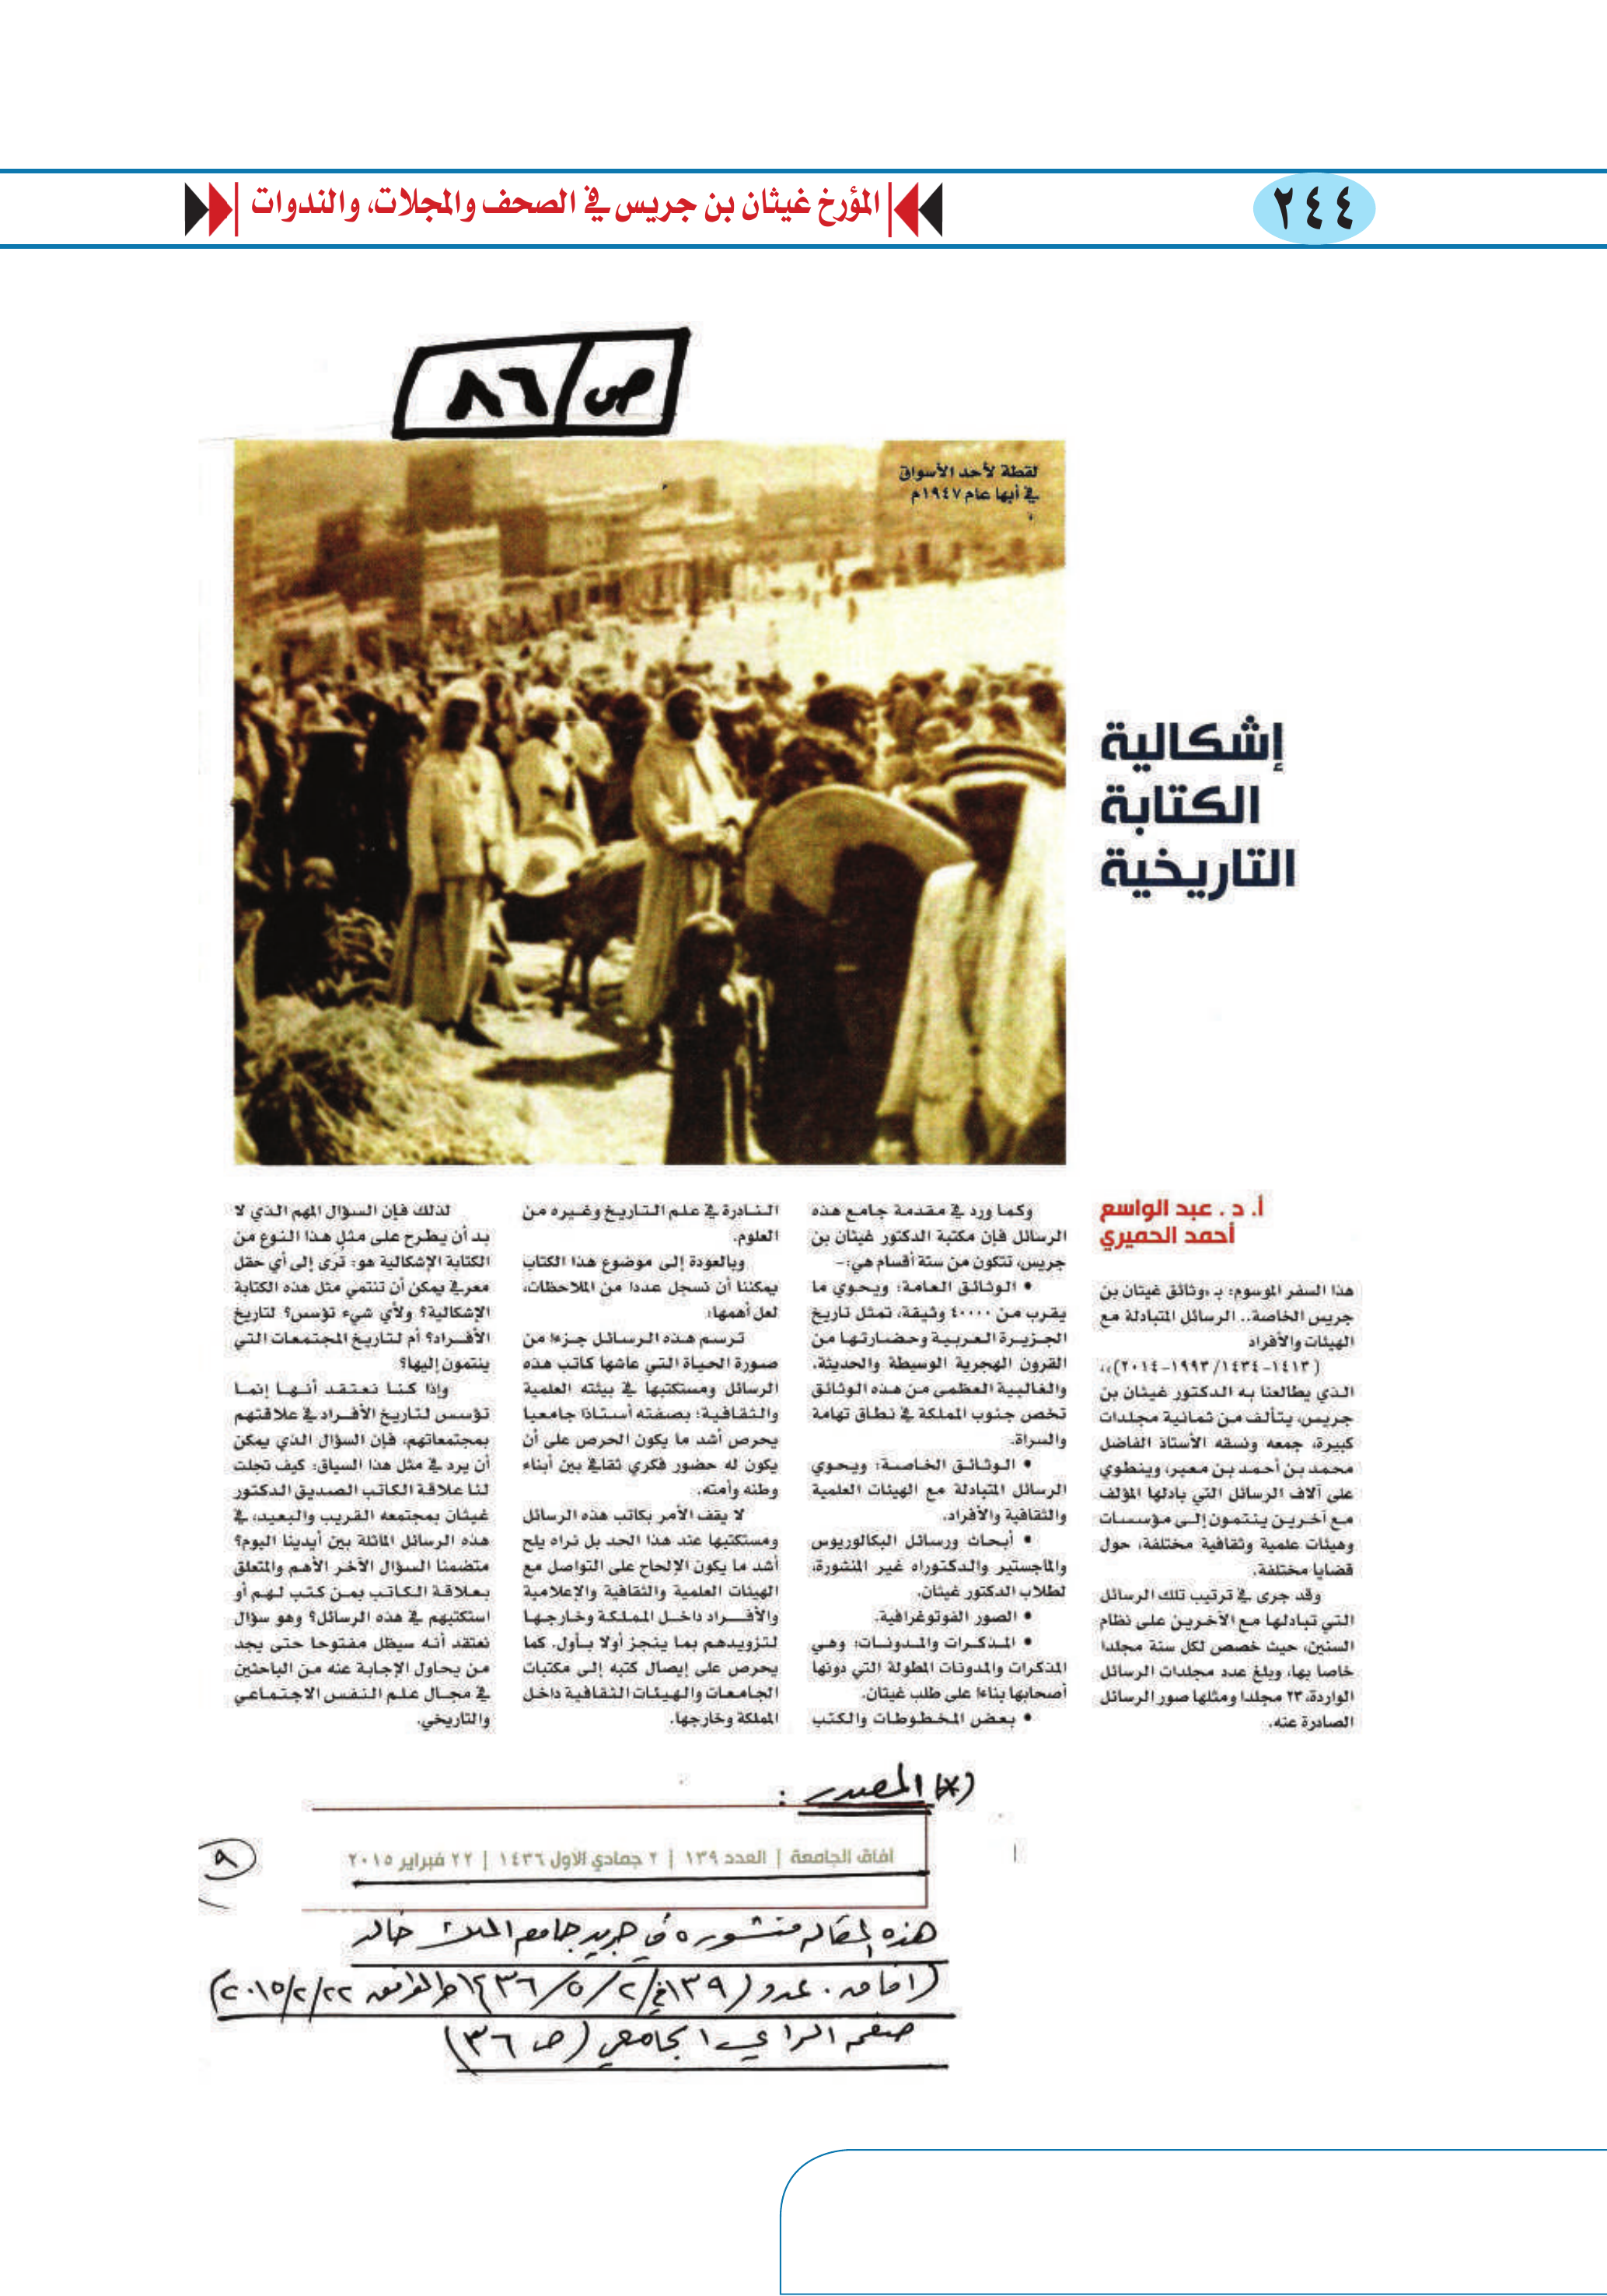 ٢٤٤
المؤرخ غيثان بن جريس في الصحف والمجلات، والندوات
ص/٨٦
لقطة لأحد الأسواق
في أبها عام ١٩٤٧م
إشكالية
الكتابة
التاريخية
أ. د . عبد الواسع
أحمد الحميري
هذا السفر الموسوم: بـ «وثائق غيثان بن
جريس الخاصة.. الرسائل المتبادلة مع
الهيئات والأفراد
(١٤١٣-١٤٣٤/ ١٩٩٣-٢٠١٤)»،
الذي يطالعنا به الدكتور غيثان بن
جريس، يتألف من ثمانية مجلدات
كبيرة، جمعه ونسقه الأستاذ الفاضل
محمد بن أحمد بن معبر، وينطوي
على آلاف الرسائل التي بادلها المؤلف
مع آخرين ينتمون إلى مؤسسات
وهيئات علمية وثقافية مختلفة، حول
قضايا مختلفة.
وقد جرى في ترتيب تلك الرسائل
التي تبادلها مع الآخرين على نظام
السنين، حيث خصص لكل سنة مجلدا
خاصا بها، وبلغ عدد مجلدات الرسائل
الواردة، ٢٣ مجلدا ومثلها صور الرسائل
الصادرة عنه.
وكما ورد في مقدمة جامع هذه
الرسائل فإن مكتبة الدكتور غيثان بن
جريس، تتكون من ستة أقسام هي:-
• الوثائق العامة: ويحوي ما
يقرب من ٤٠٠٠٠ وثيقة، تمثل تاريخ
الجزيرة العربية وحضارتها من
القرون الهجرية الوسيطة والحديثة.
والغالبية العظمى من هذه الوثائق
تخص جنوب المملكة في نطاق تهامة
والسراة.
• الوثائق الخاصة: ويحوي
الرسائل المتبادلة مع الهيئات العلمية
والثقافية والأفراد.
• أبحاث ورسائل البكالوريوس
والماجستير والدكتوراه غير المنشورة،
لطلاب الدكتور غيثان.
• الصور الفوتوغرافية.
• المذكرات والمدونات: وهي
المذكرات والمدونات المطولة التي دونها
أصحابها بناءا على طلب غيثان.
• بعض المخطوطات والكتب
النادرة في علم التاريخ وغيره من
العلوم.
وبالعودة إلى موضوع هذا الكتاب
يمكننا أن نسجل عددا من الملاحظات،
لعل أهمها:
ترسم هذه الرسائل جزءا من
صورة الحياة التي عاشها كاتب هذه
الرسائل ومستكتبها في بيئته العلمية
والثقافية؛ بصفته أستاذا جامعيا
يحرص أشد ما يكون الحرص على أن
يكون له حضور فكري ثقافي بين أبناء
وطنه وأمته.
لا يقف الأمر بكاتب هذه الرسائل
ومستكتبها عند هذا الحد بل نراه يلح
أشد ما يكون الإلحاح على التواصل مع
الهيئات العلمية والثقافية والإعلامية
والأفراد داخل المملكة وخارجها
لتزويدهم بما ينجز أولا بأول. كما
يحرص على إيصال كتبه إلى مكتبات
الجامعات والهيئات الثقافية داخل
المملكة وخارجها.
لذلك فإن السؤال المهم الذي لا
بد أن يطرح على مثل هذا النوع من
الكتابة الإشكالية هو: تُرَى إلى أي حقل
معرفي يمكن أن تنتمي مثل هذه الكتابة
الإشكالية؟ ولأي شيء تؤسس؟ لتاريخ
الأفراد؟ أم لتاريخ المجتمعات التي
ينتمون إليها؟
وإذا كنا نعتقد أنها إنما
تؤسس لتاريخ الأفراد في علاقتهم
بمجتمعاتهم، فإن السؤال الذي يمكن
أن يرد في مثل هذا السياق: كيف تجلت
لنا علاقة الكاتب الصديق الدكتور
غيثان بمجتمعه القريب والبعيد، في
هذه الرسائل الماثلة بين أيدينا اليوم؟
متضمنا السؤال الآخر الأهم والمتعلق
بعلاقة الكاتب بمن كتب لهم أو
استكتبهم في هذه الرسائل؟ وهو سؤال
نعتقد أنه سيظل مفتوحا حتى يجد
من يحاول الإجابة عنه من الباحثين
في مجال علم النفس الاجتماعي
والتاريخي.
(*) المصدر :
آفاق الجامعة | العدد ١٣٩ | ٢ جمادي الأول ١٤٣٦ | ٢٢ فبراير ٢٠١٥
٩
هذه المقالة منشورة في جريدة جامعة الملك خالد
(آفاق . عدد (١٣٩) في ٢/٥/١٤٣٦هـ الموافق ٢٢/٢/٢٠١٥)
صفحة الرأي الجامعي (ص ٣٦)